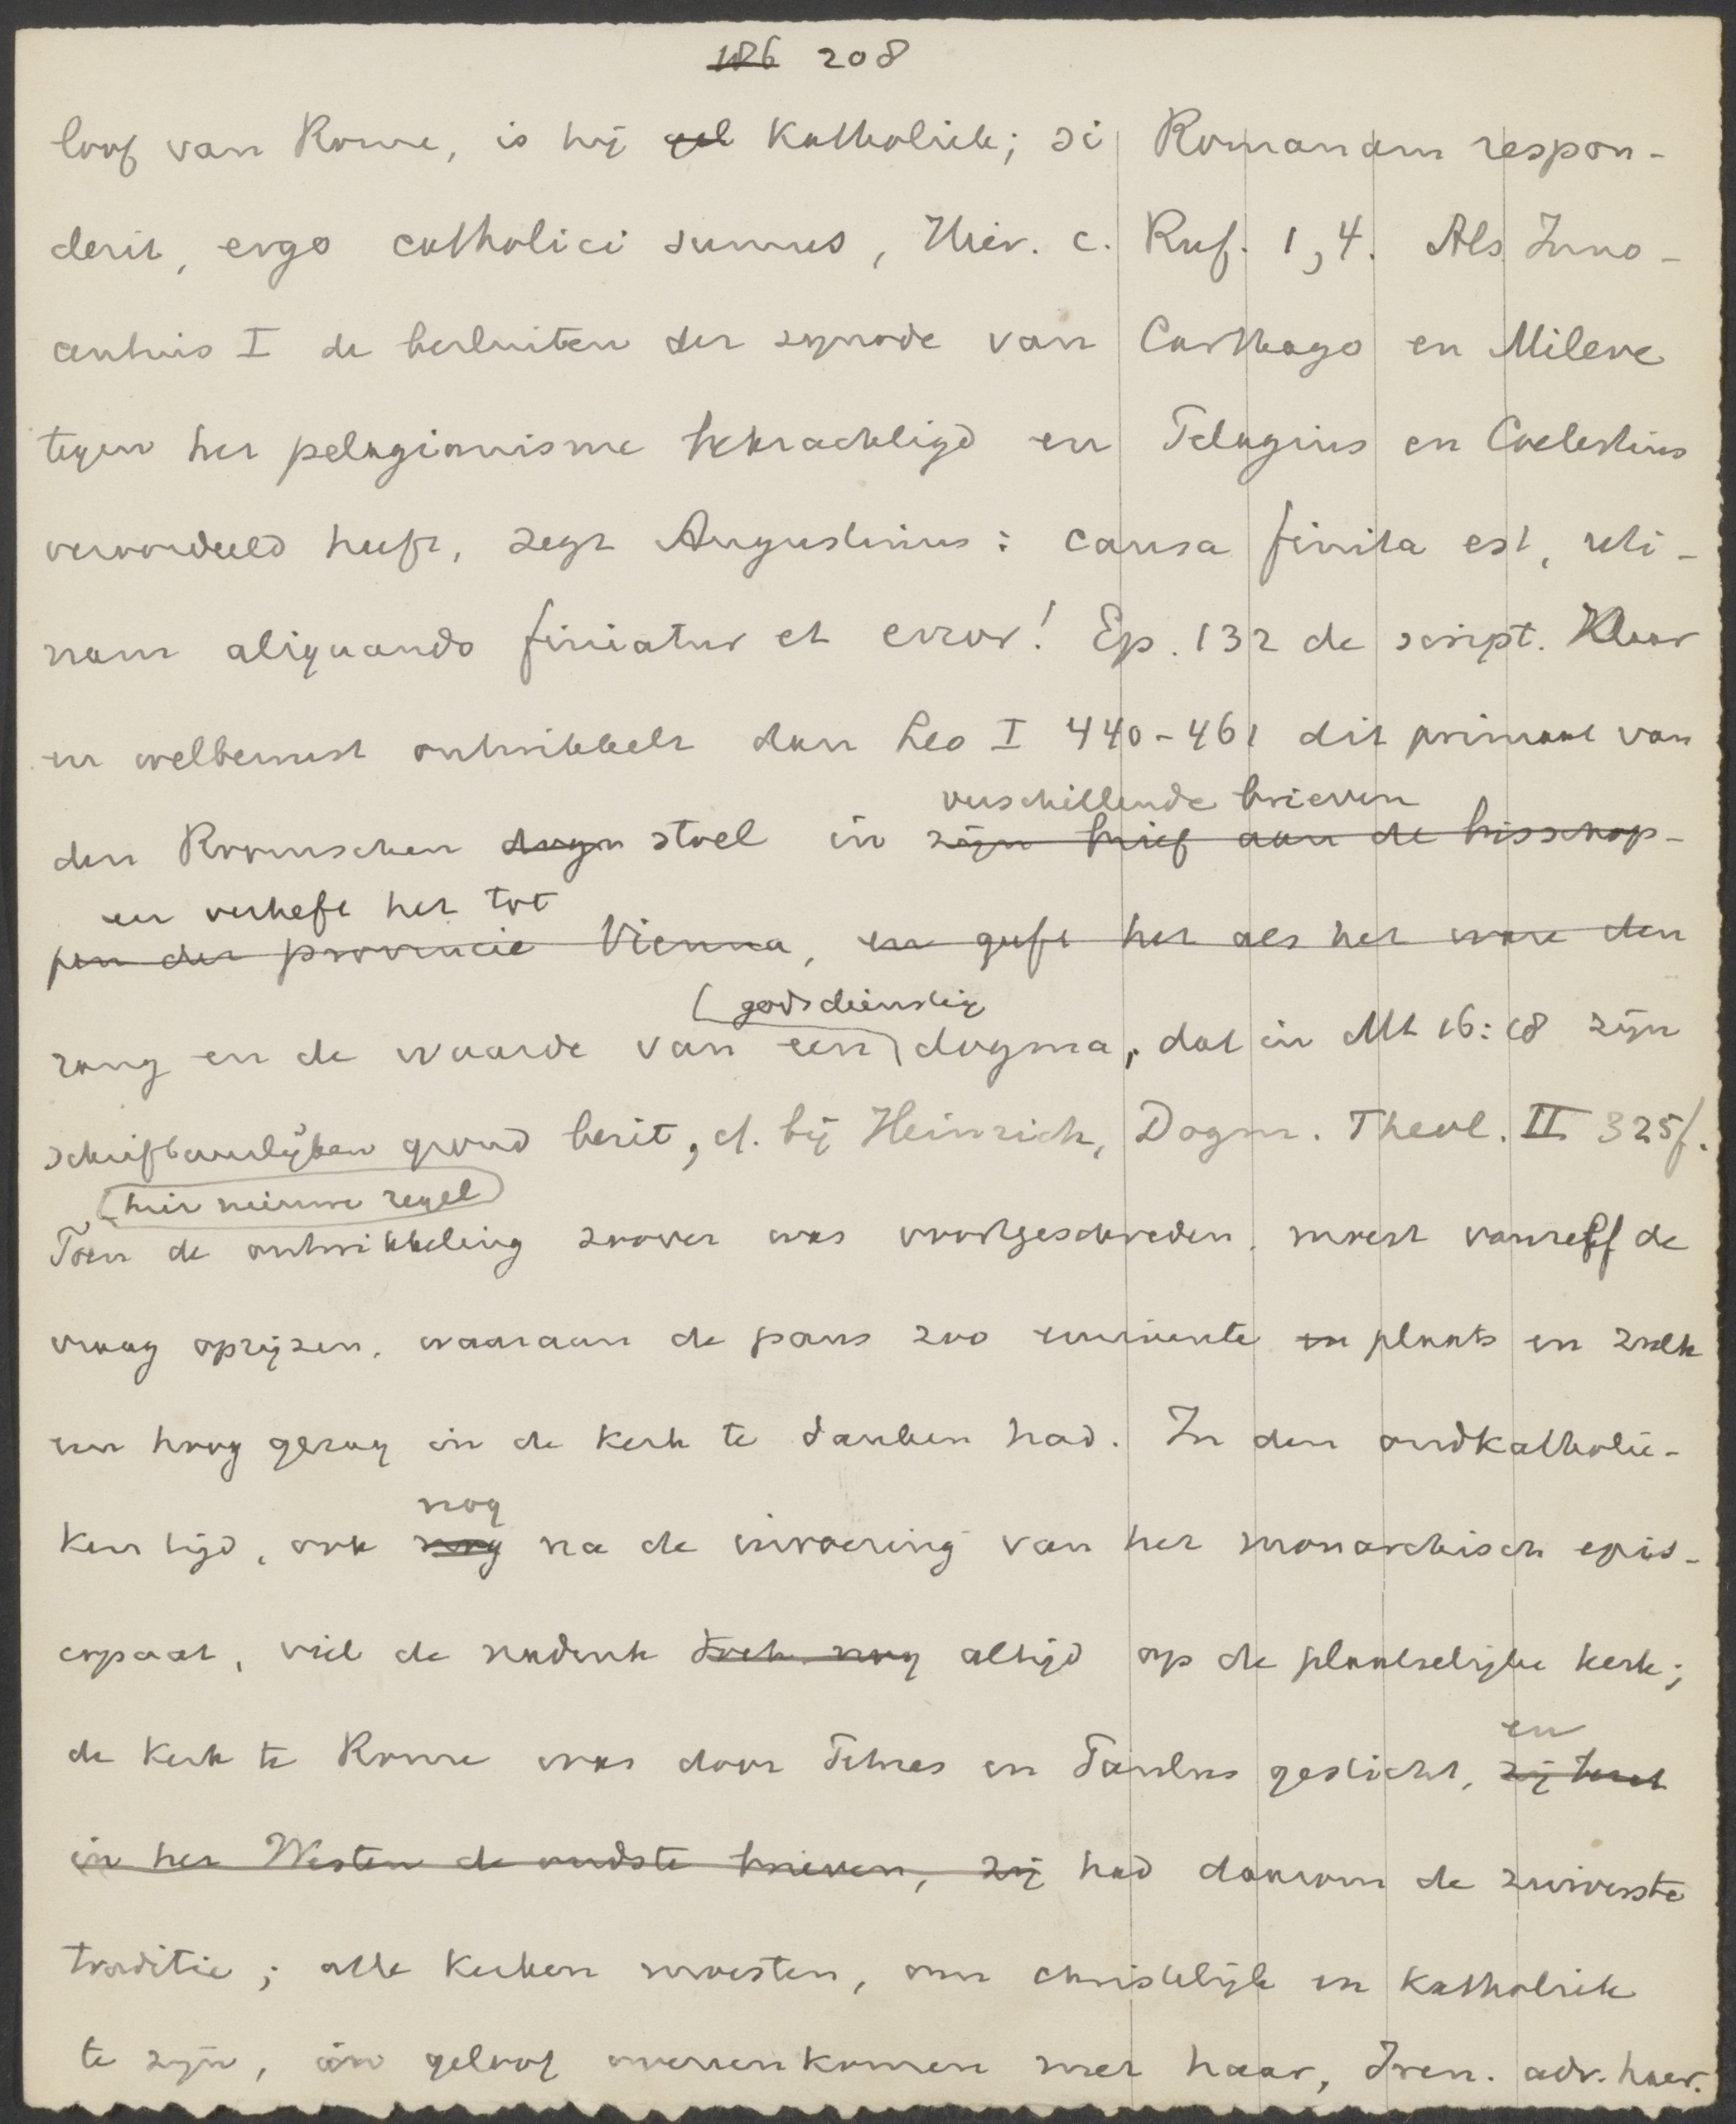 186 208
loof van Rome, is hij gel Katholiek; si Romanam respon-
derit, ergo catholici sumus, Hier. c. Ruf. 1,4. Als Inno-
centius I de besluiten der synode van Carthago en Mileve
tegen het pelagianisme bekrachtigd en Pelagius en Coelestius
veroordeeld heeft, zegt Augustinus: causa finita est, uti-
nam aliquando finiatur et error! Ep. 132 de script. Klaar
en welbewust ontwikkelt dan Leo I 440-461 dit primaat van
verschillende brieven
den Roomschen dogm stoel in zijn brief aan de bisschop-
en verheft het tot
pen der provincie Vienna, en geeft het als het ware den
godsdienstig
rang en de waarde van een dogma, dat in Mt 16:18 zijn
schriftuurlijken grond bezit, cf. bij Heinrich, Dogm. Theol. II 325f.
hier nieuwe regel
Toen de ontwikkeling zoover was voortgeschreden, moest vanzelf de
vraag oprijzen, waaraan de paus zoo eminente en plaats en zulk
een hoog gezag in de kerk te danken had. In den oudkatholie-
nog
ken tijd, ook nog na de invoering van het monarchisch epis-
copaat, viel de nadruk toch nog altijd op de plaatselijke kerk;
en
de kerk te Rome was door Petrus en Paulus gesticht, zij bezat
in het Westen de oudste brieven, zij had daarom de zuiverste
traditie; alle kerken moesten, om christelijk en katholiek
te zijn, in geloof overeenkomen met haar, Iren. adv. haer.